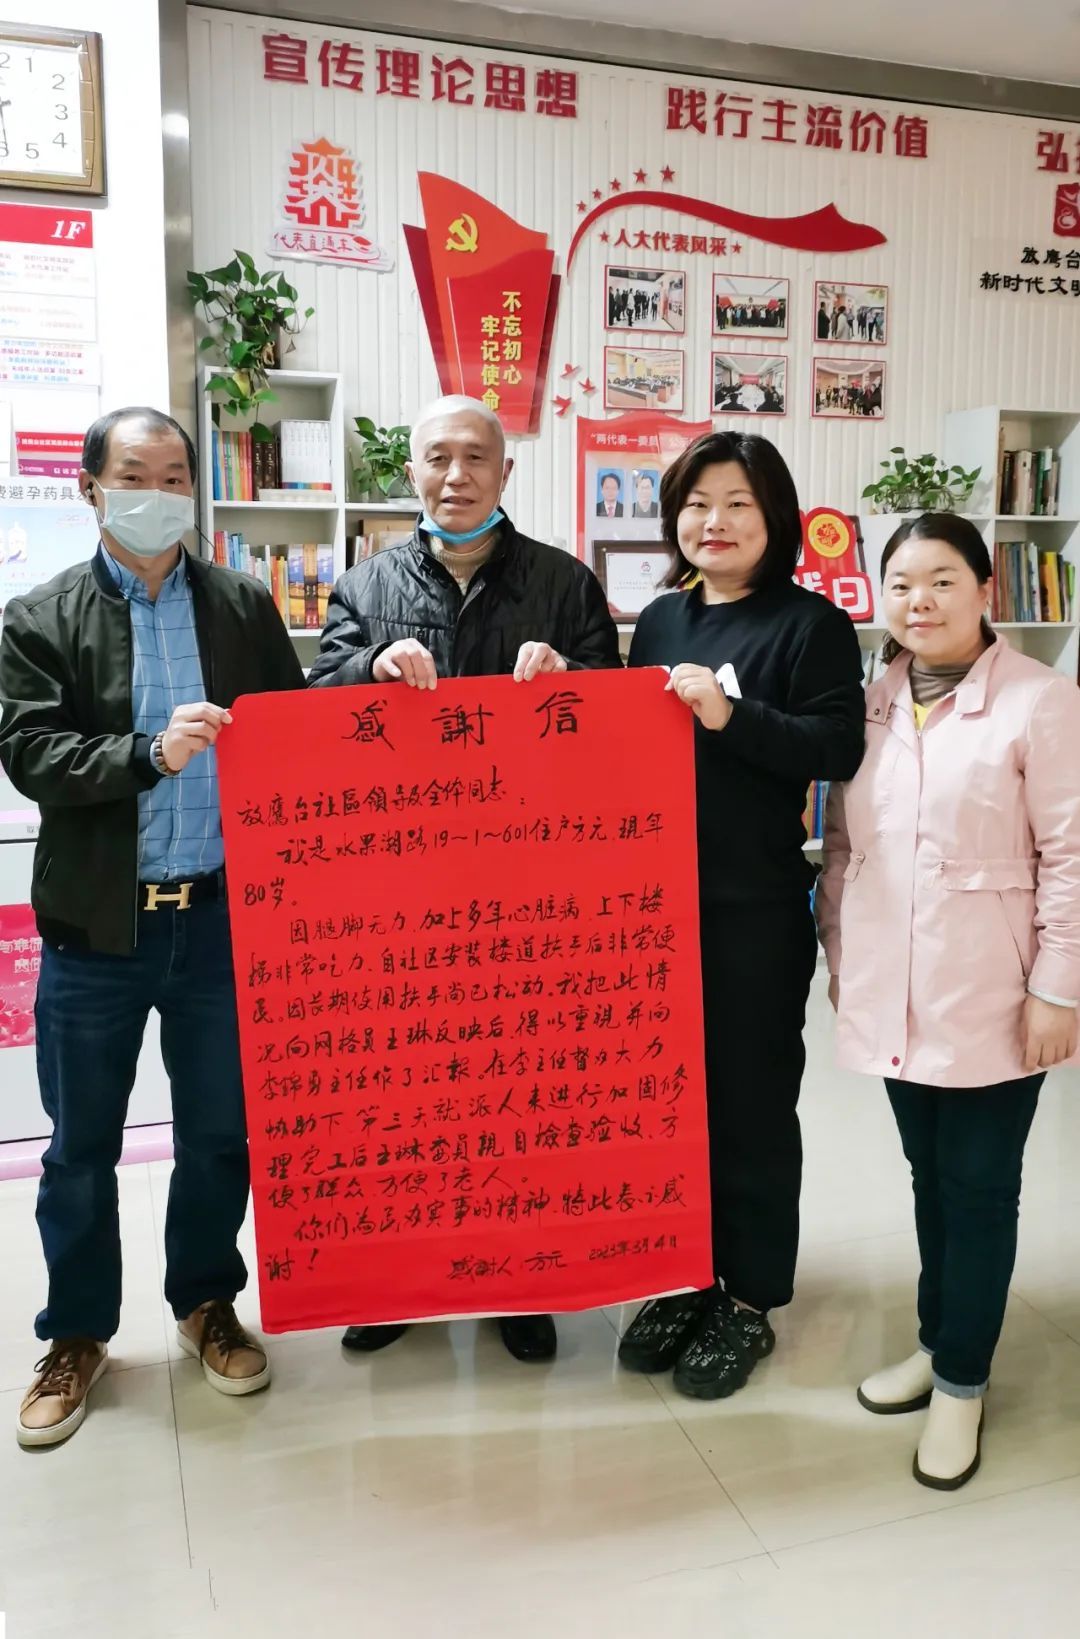 宣传理论思想
践行主流价值
弘
代表直通车
不忘初心
牢记使命
★人大代表风采★
放鹰台
新时代文明
1F
12
1
2
3
4
5
"两代表一委员"公示
费避孕药具发
日
感謝信
放鷹台社區領导及全体同志：
我是水果湖路19～1～601住户方元，現年
80岁。
因腿脚无力，加上多年心脏病，上下楼
梯非常吃力，自社区安装楼道扶手后非常便
民。因长期使用扶手尚已松动。我把此情
况向网格员王琳反映后，得以重視并向
李锦勇主任作了汇報。在李主任督办大力
协助下，第三天就派人来进行加固修
理，完工后王琳委員親自檢查验收，方
便了群众，方便了老人。
你们為民办实事的精神，特此表示感
谢！
感謝人：方元 2023年3月4日